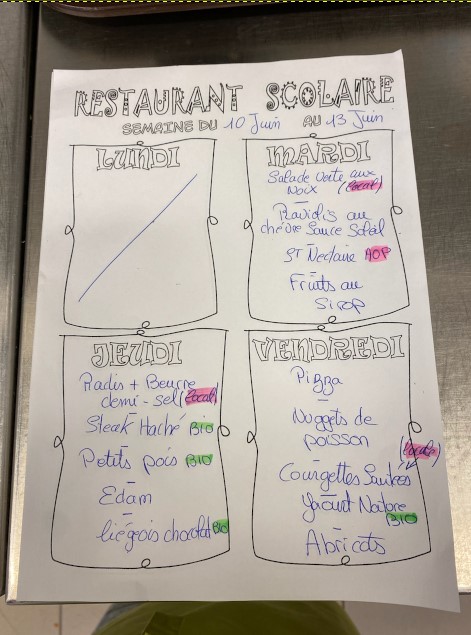 RESTAURANT SCOLAIRE
SEMAINE DU 10 Juin AU 13 Juin
LUNDI
MARDI
Salade verte aux
Noix (local)
Raviolis au
chèvre Sauce Soleil
ST Nectaire AOP
Fruits au
Sirop
JEUDI
Radis + Beurre
demi-sel (local)
Steak Haché BIO
Petits pois BIO
Edam
liégeois chocolat BIO
VENDREDI
Pizza
Nuggets de
poisson
(local)
Courgettes Sautées
Yaourt Nature
BIO
Abricots